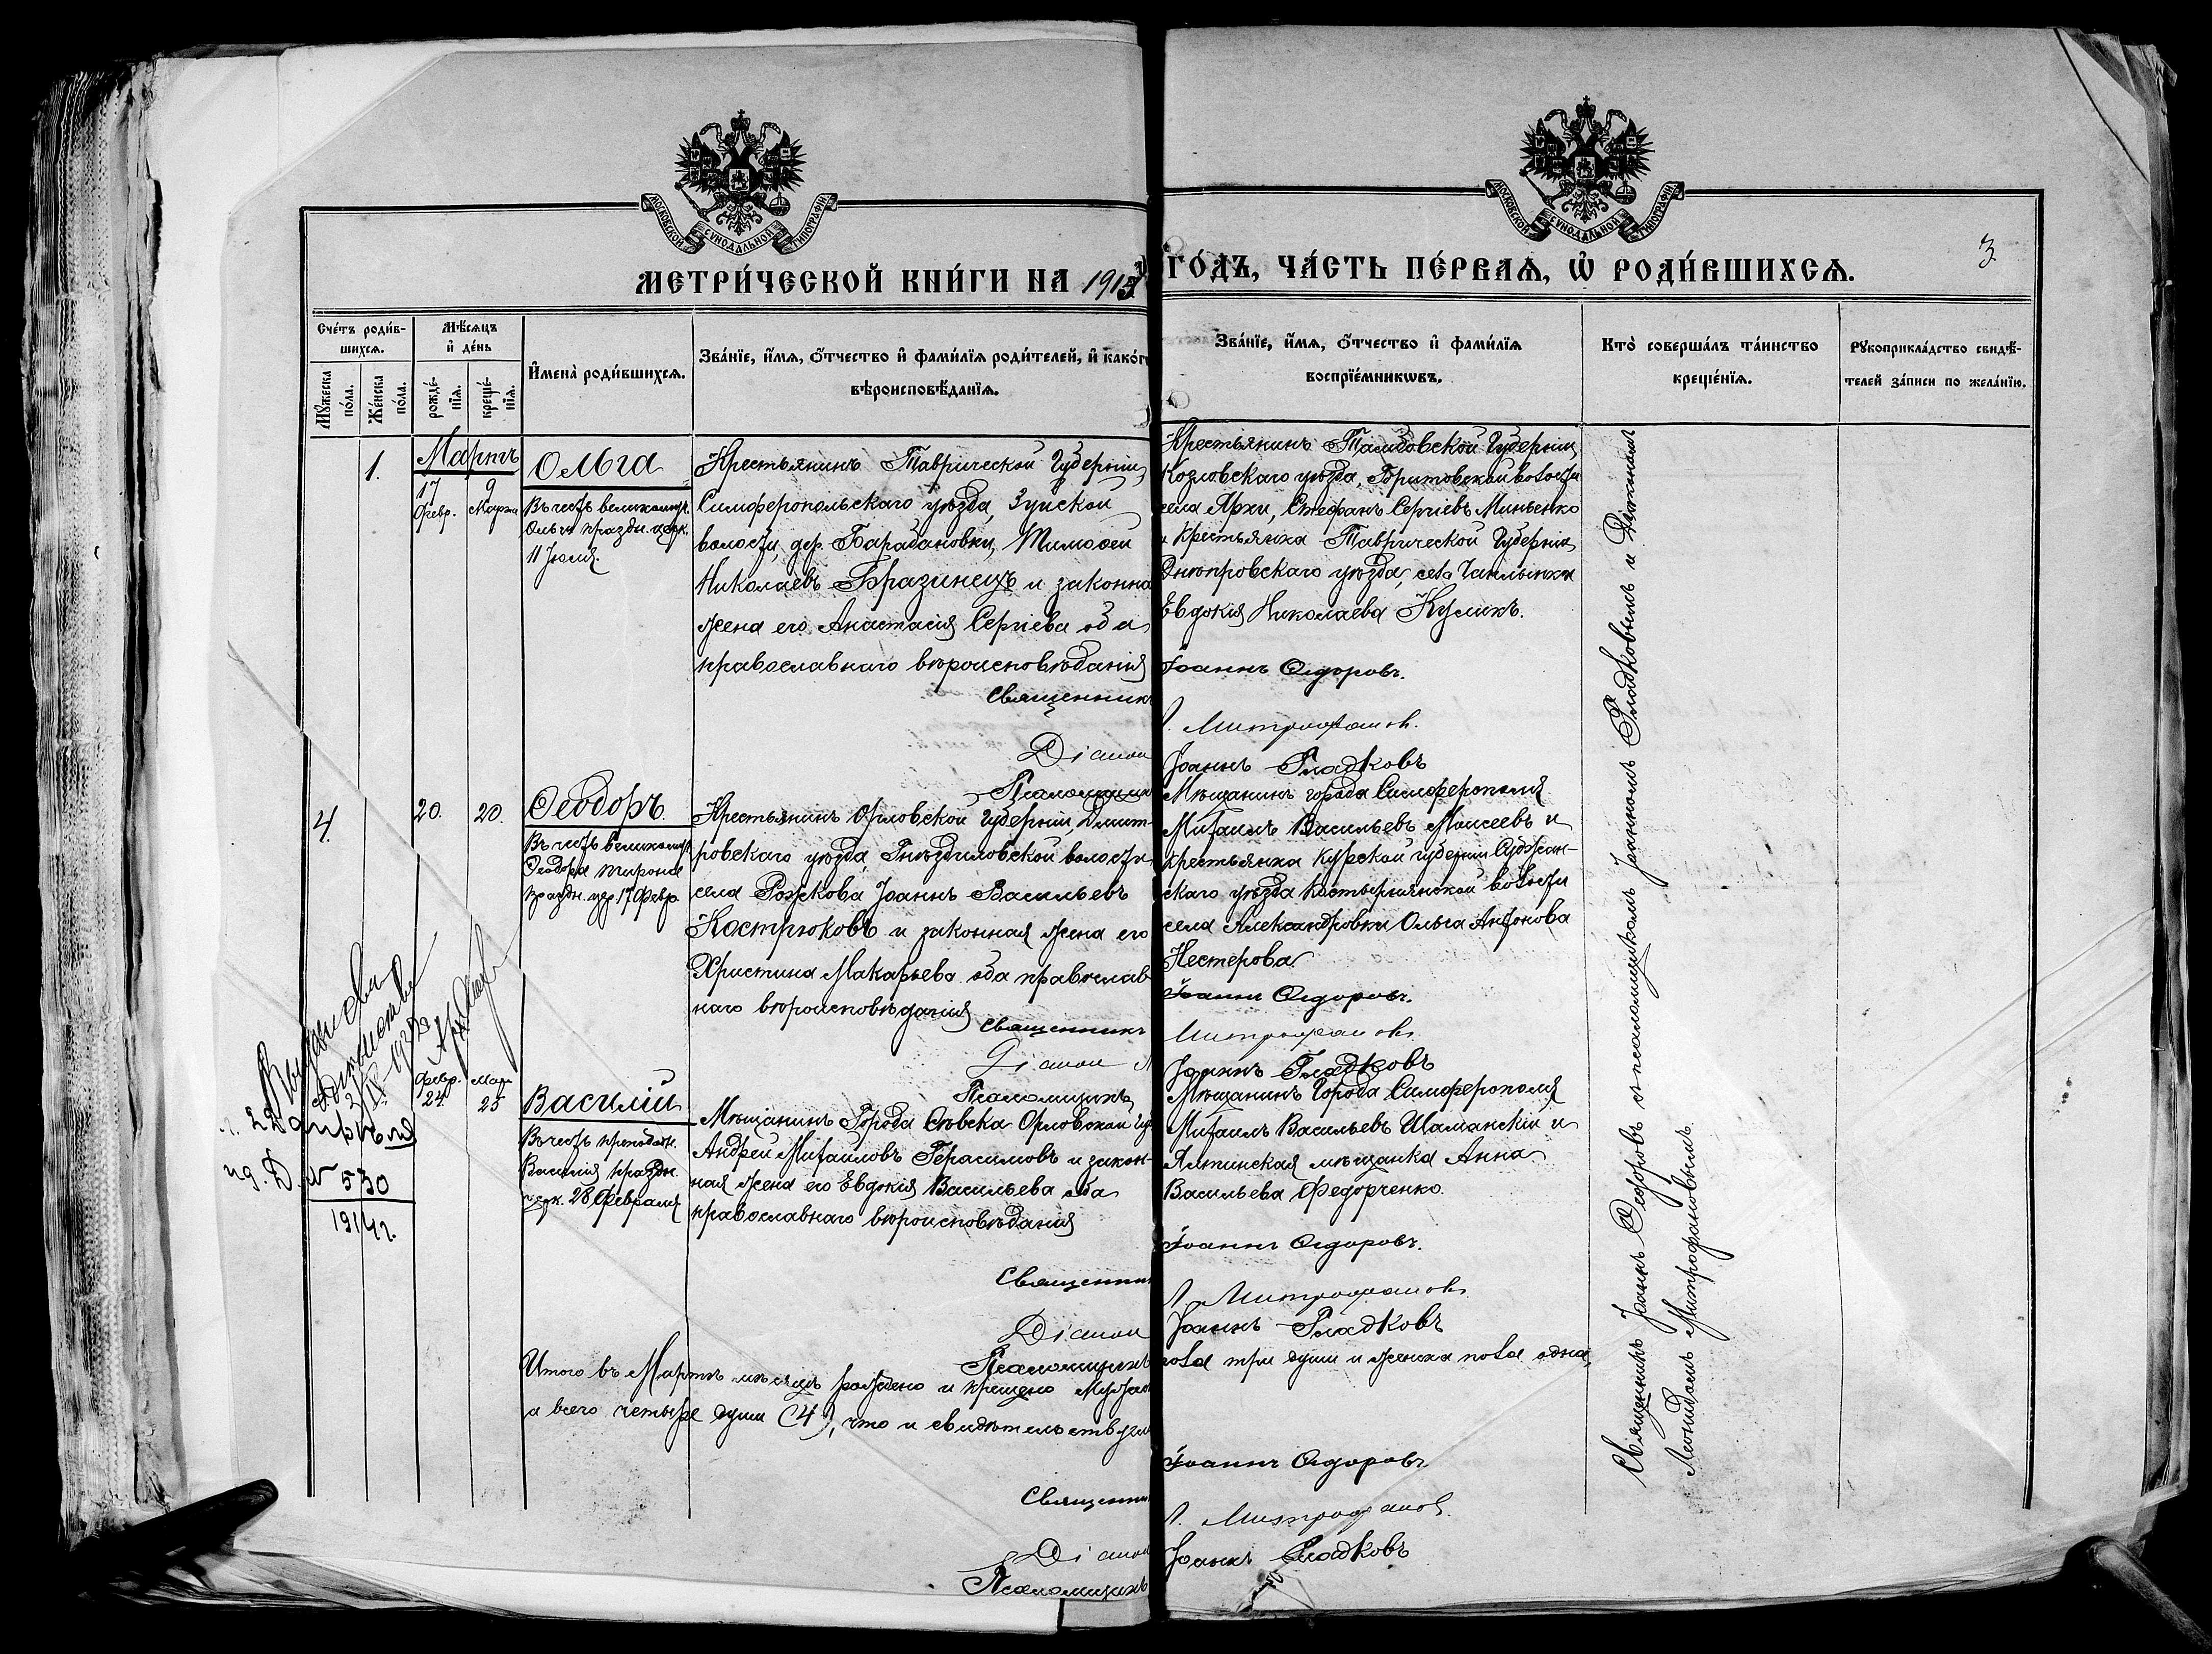 МОСКОВСКОЙ СѴНОДАЛЬНОЙ ТИПОГРАФІИ
МОСКОВСКОЙ СѴНОДАЛЬНОЙ ТИПОГРАФІИ
МЕТРИ́ЧЕСКОЙ КНИ́ГИ НА 1913
ГО́ДЪ, ЧА́СТЬ ПЕ́РВАѦ, Ѿ РОДИ́ВШИХСѦ.
3.
Сче́тъ роди́в-
шихсѧ.
Мꙋ́жеска по́ла.
Же́нска по́ла.
Мѣ́сѧцъ
и҆ де́нь
рожде́-
нїѧ.
креще́-
нїѧ.
И҆мена̀ роди́вшихсѧ.
Зва́нїе, и҆́мѧ, ѻ҆́тчество и҆ фами́лїѧ роди́телей, и҆ како́гѡ
вѣроисповѣ́данїѧ.
Зва́нїе, и҆́мѧ, ѻ҆́тчество и҆ фами́лїѧ
воспрїе́мникѡвъ.
Кто̀ соверша́лъ та́инство
креще́нїѧ.
Рꙋкоприкла́дство свидѣ́-
телей за́писи по жела́нїю.
1.
Мартъ
17 Февр.
9 Марта
Ольга
Въ честь великомуч.
Ольги праздн. церк.
11 Іюля.
Крестьянинъ Таврической Губерніи,
Симферопольскаго уѣзда, Зуйской
волости, дер. Барабановки, Тимоѳей
Николаевъ Бразинецъ и законна
жена его Анастасія Сергіева оба
православнаго вѣроисповѣданія
Священник
Діакон
Псаломщик
Крестьянинъ Тамбовской Губерніи,
Козловскаго уѣзда, волости
села Ярки, Стефанъ Сергіевъ Миньенко
и Крестьянка Таврической Губерніи
Днѣпровскаго уѣзда, села Чаплынки
Евдокія Николаева Куликъ.
Іоаннъ Ѳедоровъ.
Л. Митрофановъ.
Іоаннъ Гладковъ
4.
20.
20.
Ѳеодоръ.
Въ честь великомуч.
Ѳеодора Тирона
праздн. цер. 17 Февр.
Крестьянинъ Орловской Губерніи, Дмит-
ровскаго уѣзда, Гнѣздиловской волости
села Рожкова Іоаннъ Васильевъ
Кострюковъ и законная жена его
Христина Макарьева оба православ
наго вѣроисповѣданія
Священникъ
Діакон
Псаломщикъ
Мѣщанинъ города Симферополя
Михаилъ Васильевъ Моисеевъ и
крестьянка Курской губерніи Суджан-
скаго уѣзда волости
села Александровки Ольга Антонова
Нестерова
Іоаннъ Ѳедоровъ.
Митрофановъ.
Іоаннъ Гладковъ
Февр. 24.
Мар. 25
Василій
Въ честь преподобн.
Василія праздн.
церк. 28 Февраля
Мѣщанинъ Города Сѣвска Орловской Гу
Андрей Михаиловъ Герасимовъ и закон-
ная жена его Евдокія Васильева оба
православнаго вѣроисповѣданія
Священни
Діакон
Псаломщикъ
Мѣщанинъ Города Симферополя
Михаилъ Васильевъ Шаманскій и
Ялтинская мѣщанка Анна
Васильева Федорченко.
Іоаннъ Ѳедоровъ.
Л. Митрофановъ
Іоаннъ Гладковъ
22 апрѣля
№ 530
1914 г.
Итого въ Мартѣ мѣсяцѣ рождено и крещено мужск
пола три души и женска пола одна,
а всего четыре души (4), что и свидѣтельствуем
Священни
Діакон
Псаломщикъ
Іоаннъ Ѳедоровъ.
Л. Митрофановъ.
Іоаннъ Гладковъ
Священникъ Іоаннъ Ѳедоровъ съ псаломщикомъ Іоанномъ Гладковымъ и Діакономъ
Леонидомъ Митрофановымъ